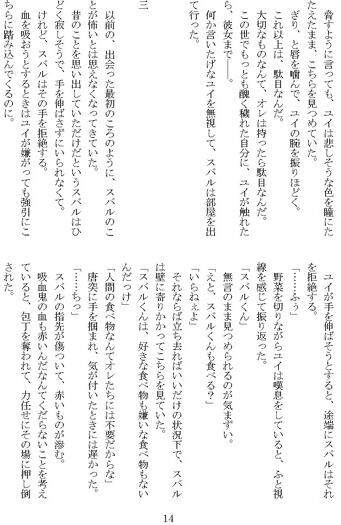 脅すように言っても、ユイは悲しそうな色を瞳にた
たえたまま、こちらを見つめていた。
ぎり、と唇を噛んで、ユイの腕を振りほどく。
これ以上は、駄目なんだ。
大切なものなんて、オレは持ったら駄目なんだ。
この世でもっとも醜く穢れた自分に、ユイが触れた
ら、彼女まで――。
何か言いたげなユイを無視して、スバルは部屋を出
て行った。
三
以前の、出会った最初のころのように、スバルのこ
とが怖いとは思えなくなってきていた。
昔のことを思い出していただけだというスバルはひ
どく寂しそうで、手を伸ばさずにいられなくて。
けれど、スバルはその手を拒絶する。
血を吸おうとするときはユイが嫌がっても強引にこ
ちらに踏み込んでくるのに。
ユイが手を伸ばそうとすると、途端にスバルはそれ
を拒絶する。
「……ふぅ」
野菜を切りながらユイは嘆息をしていると、ふと視
線を感じて振り返った。
「スバルくん」
無言のまま見つめられるのが気まずい。
「えと、スバルくんも食べる？」
「いらねぇよ」
それならば立ち去ればいいだけの状況下で、スバル
は壁に寄りかかってこちらを見ていた。
「スバルくんは、好きな食べ物も嫌いな食べ物もない
んだっけ」
「人間の食べ物なんてオレたちには不要だからな」
唐突に手を掴まれ、気が付いたときには遅かった。
「……ちっ」
スバルの指先が傷ついて、赤いものが滲む。
吸血鬼の血も赤いんだなんてくだらないことを考え
ていると、包丁を奪われて、力任せにその場に押し倒
された。
14